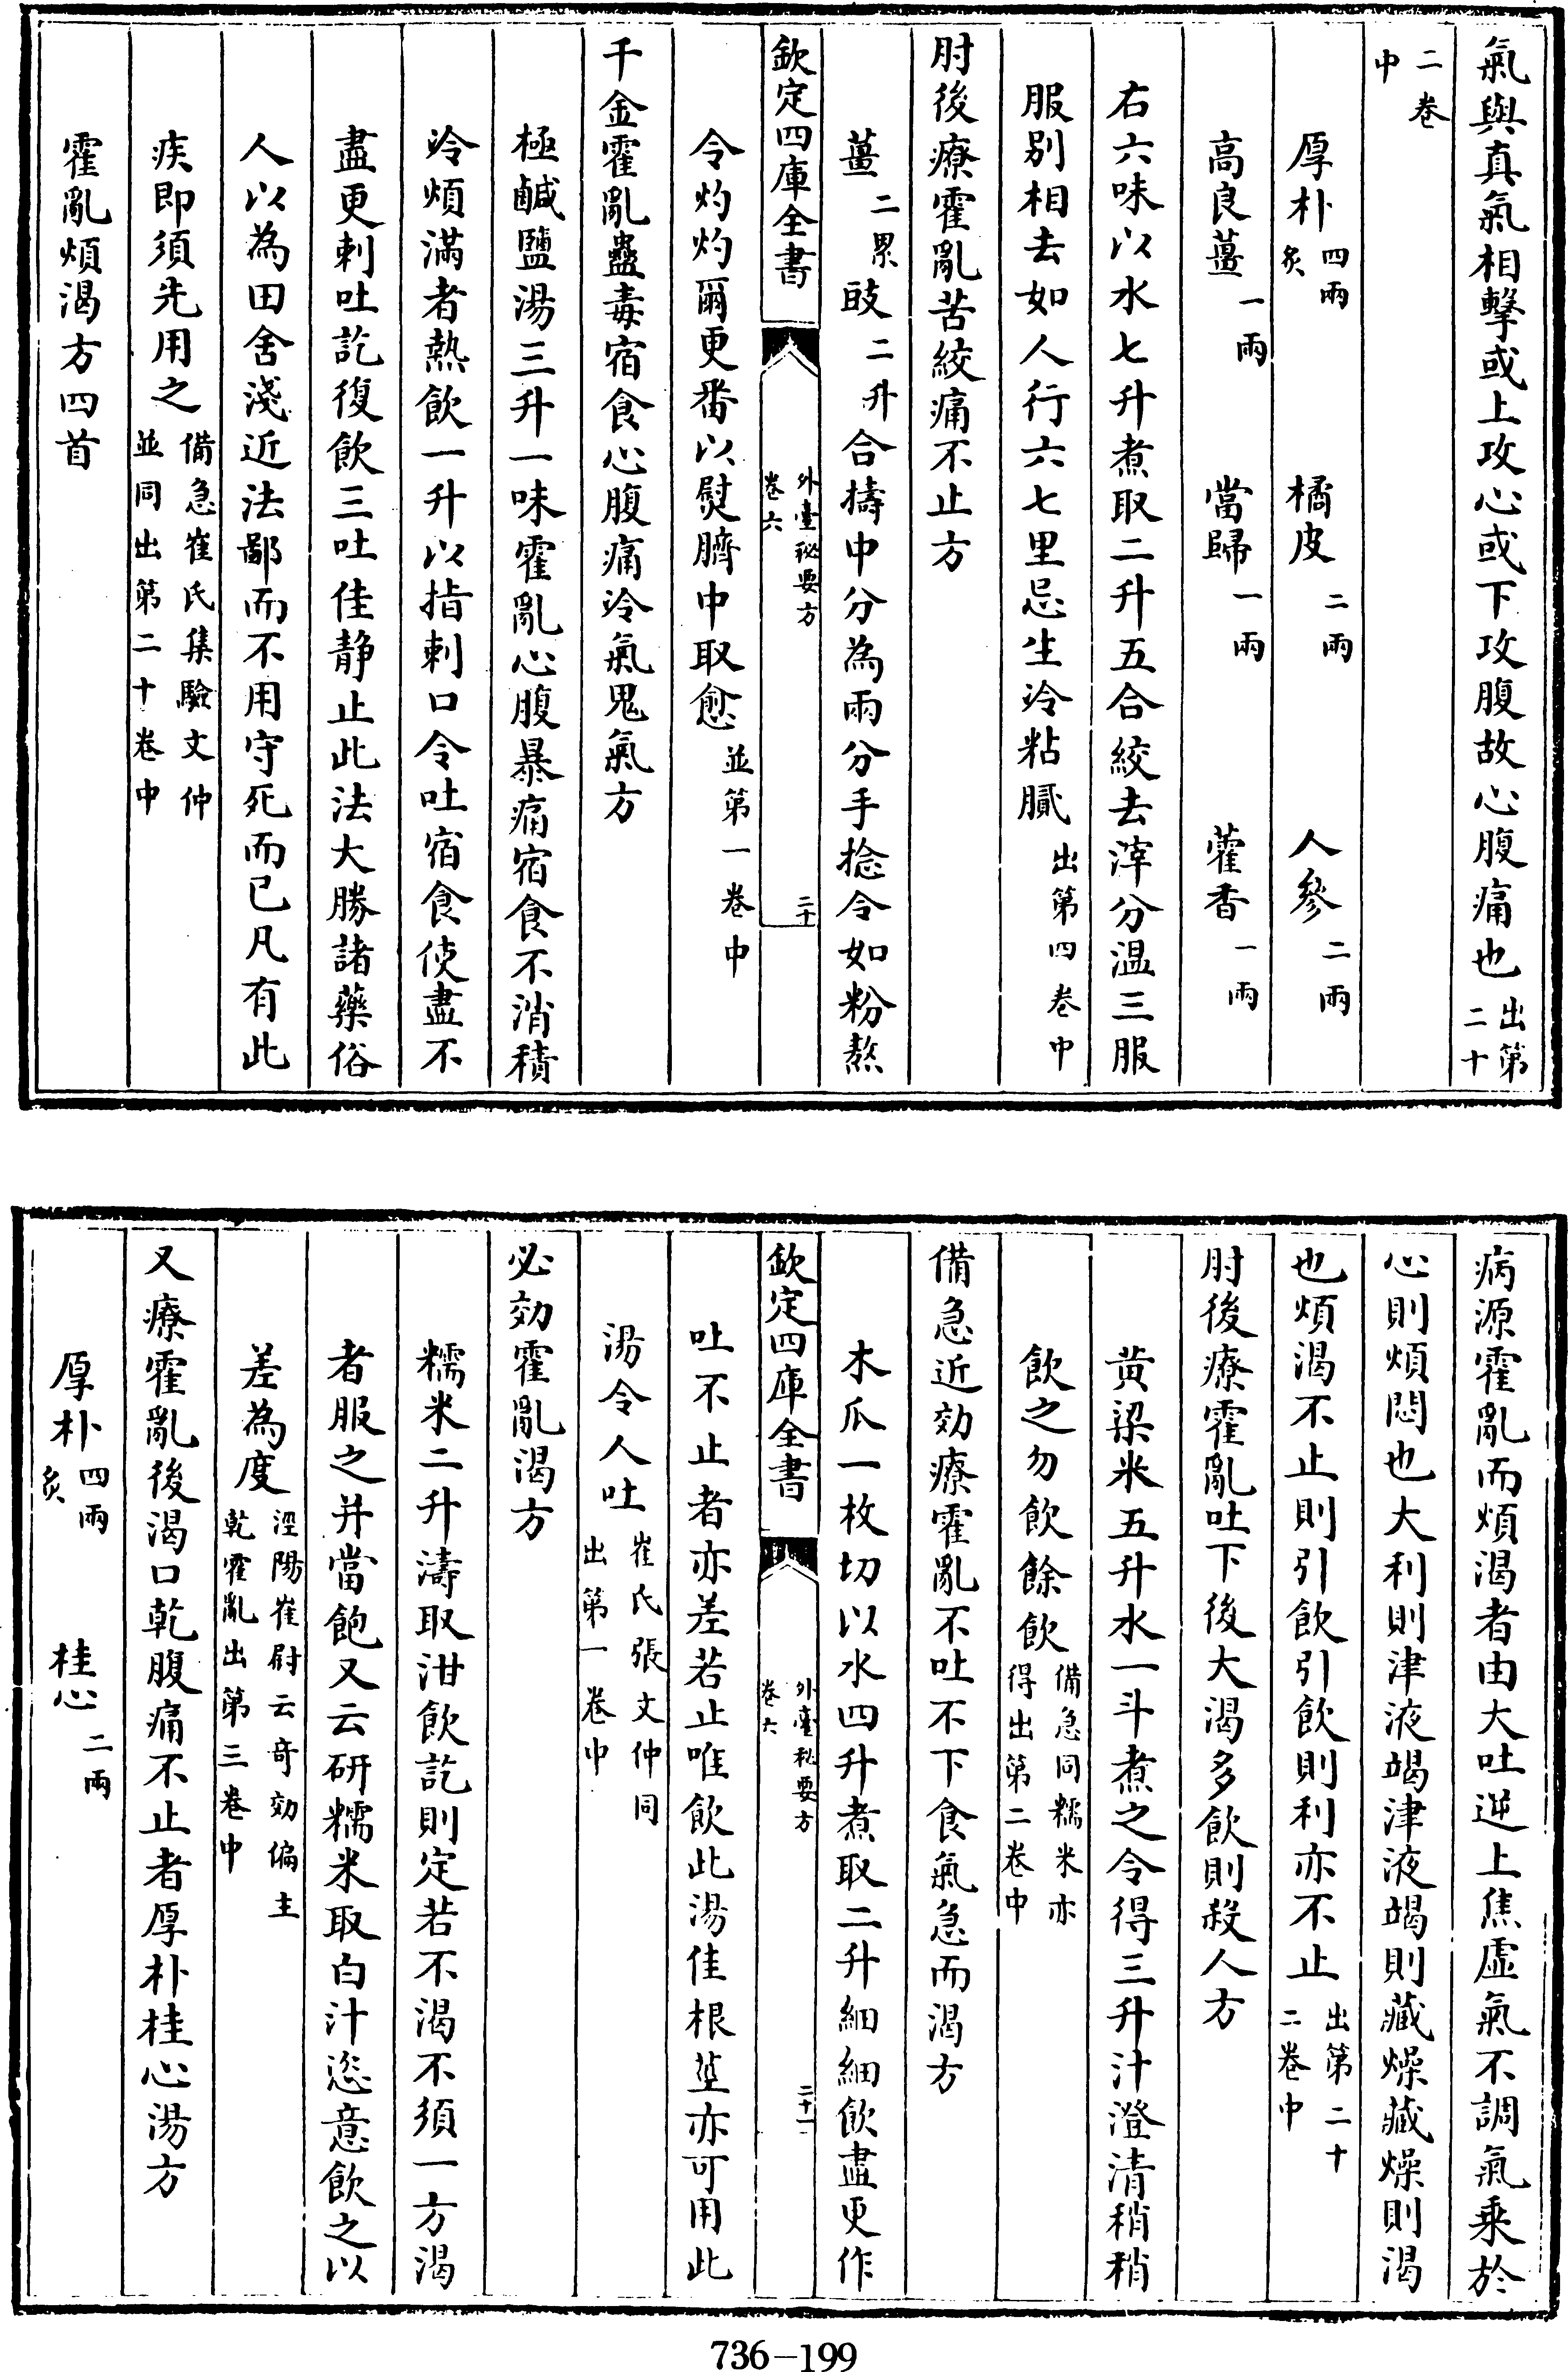 氣與真氣相擊或上攻心或下攻腹故心腹痛也出第二十
二卷中
厚朴四兩炙 橘皮二兩 人參二兩
高良薑一兩 當歸一兩 藿香一兩
右六味以水七升煮取二升五合絞去滓分温三服
服別相去如人行六七里忌生冷粘膩出第四卷中
肘後療霍亂苦絞痛不止方
薑二累豉二升合擣中分為兩分手捻令如粉熬
欽定四庫全書 外臺秘要方卷六 二十
令灼灼爾更番以熨臍中取愈並第一卷中
千金霍亂蠱毒宿食心腹痛冷氣鬼氣方
極鹹鹽湯三升一味霍亂心腹暴痛宿食不消積
冷煩滿者熱飲一升以指刺口令吐宿食使盡不
盡更刺吐訖復飲三吐佳静止此法大勝諸藥俗
人以為田舍淺近法鄙而不用守死而已凡有此
疾即須先用之備急崔氏集驗文仲並同出第二十卷中
霍亂煩渴方四首
病源霍亂而煩渴者由大吐逆上焦虛氣不調氣乘於
心則煩悶也大利則津液竭津液竭則藏燥藏燥則渴
也煩渴不止則引飲引飲則利亦不止出第二十二卷中
肘後療霍亂吐下後大渴多飲則殺人方
黄梁米五升水一斗煮之令得三升汁澄清稍稍
飲之勿飲餘飲備急同糯米亦得出第二卷中
備急近効療霍亂不吐不下食氣急而渴方
木瓜一枚切以水四升煮取二升細細飲盡更作
欽定四庫全書 外臺秘要方卷六 二十一
吐不止者亦差若止唯飲此湯佳根莖亦可用此
湯令人吐崔氏張文仲同出第一卷中
必効霍亂渴方
糯米二升濤取泔飲訖則定若不渴不須一方渴
者服之并當飽又云研糯米取白汁恣意飲之以
差為度涇陽崔尉云奇効偏主乾霍亂出第三卷中
又療霍亂後渴口乾腹痛不止者厚朴桂心湯方
厚朴四兩炙 桂心二兩
736-199